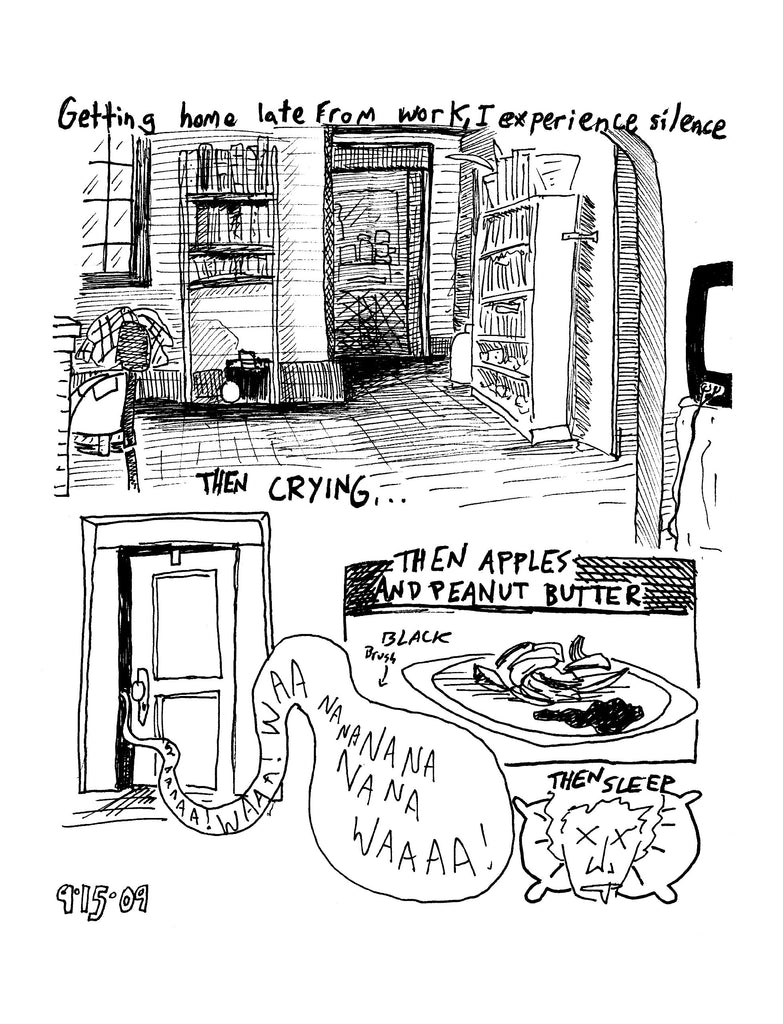 Getting home late From work, I experience silence
THEN CRYING...
THEN APPLES
AND PEANUT BUTTER
BLACK
Brush
WAAAA! WAAA! WAA
NA
NANANANA
NANA
WAAAA!
THEN SLEEP
9·15·09